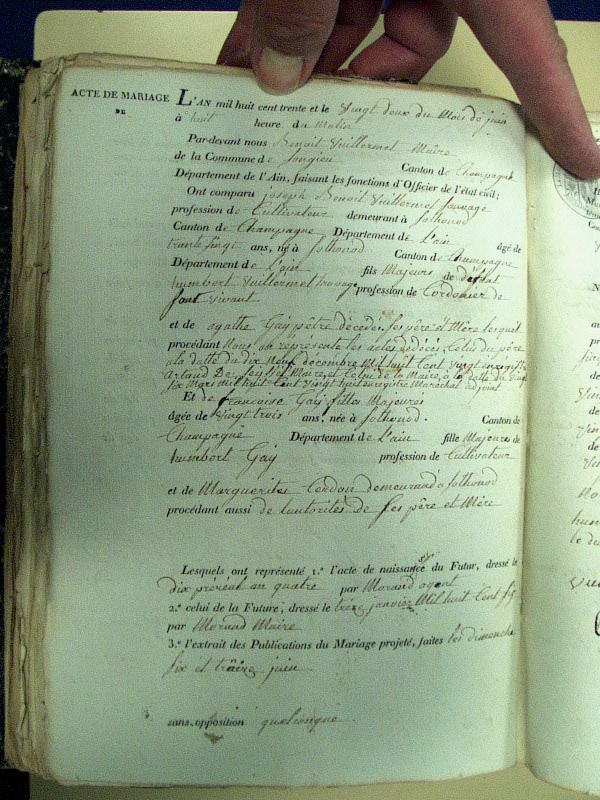 ACTE DE MARIAGE
DE
L'AN mil huit cent trente et le Vingt deux du Mois de juin
à huit heure du Matin
Par-devant nous Benoit Vuillermet Maire
de la Commune de Songieu Canton de Champagne
Département de l'Ain, faisant les fonctions d'Officier de l'état civil;
Ont comparu joseph Benoit Vuillermet sauvage
profession de Cultivateur demeurant à Sothonod
Canton de Champagne Département de L'ain âgé de
trante ans, né à Sothonod Canton de Champagne
Département de L'ain fils Majeurs de défunt
humbert Vuillermet sauvage profession de Cordonier de
son vivant
et de agathe Gay pêtre décédés ses père et Mère lesquel
procédant Nous on représente les actes dédécès Celui du père
a la datte du dix Neuf décembre Mil huit Cent Vingt
Maire et Celui de la Maire à la datte du
six Mars mil huit Cent Vingt huit enregistre Maréchal adjoint
Et de francoise Gay filles Majeures
âgée de Vingt trois ans, née à Sothonod. Canton de
Champagne Département de L'ain fille Majeure de
humbert Gay profession de Cultivateur
et de Marguerites Cordon demeurand a Sothonod
procédant aussi de Lautorités de ses père et Mère
Lesquels ont représenté 1.º l'acte de naissance du Futur, dressé le
dix an quatre par Morand agent
2.º celui de la Future, dressé le janvier Mil huit Cent
par Morand Maire
3.º l'extrait des Publications du Mariage projeté, faites les dimanche
six et traize juin
sans opposition quelconque